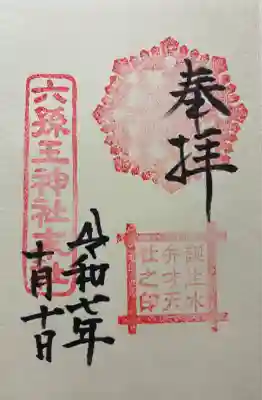 奉拝
誕生水
弁才天
社之印
六孫王神社
令和七年
十月十日